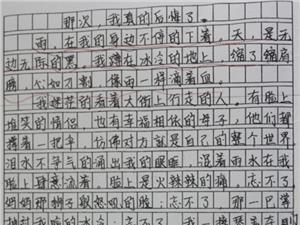 那次，我真的后悔了。
雨，在我的身边不停的下着。天，是无
边无际的黑。我蹲在冰冷的地上，缩了缩肩
膀，心如刀割，像雨一样滴着血。
我迷茫的看着大街上行走的人。有脸上
挂笑的情侣，也有幸福相依的母子，他们
撑着一把伞，仿佛对方就是自己的整个世界。
泪水不争气的涌出我的眼睛，混着雨水在我
脸上肆意流着。脸上是火辣辣的痛，忘不了
妈妈那狮子般怒吼的脸；忘不了，那一巴掌